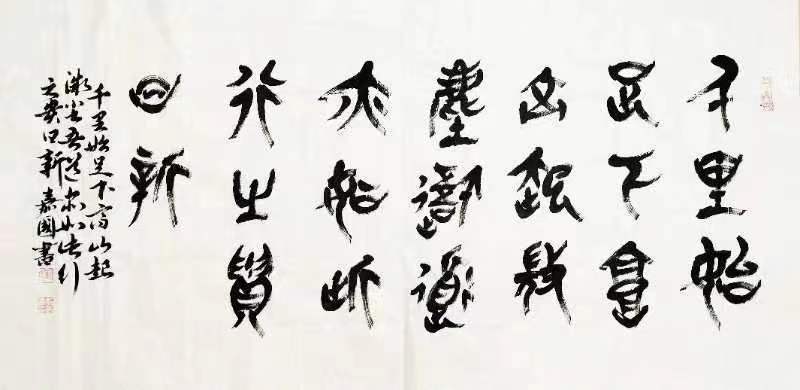 千里始
足下高
山起微
塵吾道
亦如此
行之貴
日新
千里始足下高山起
微尘吾道亦如此行
之贵日新 嘉國書